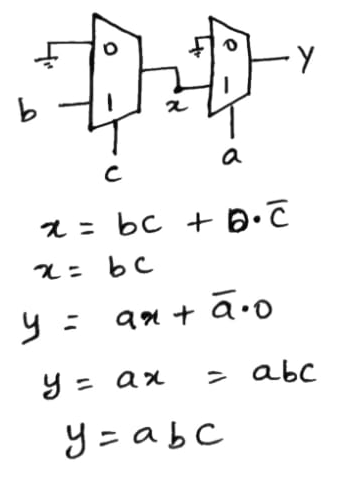 0
0
y
b
1
x
1
c
a
x = bc + 0·c̅
x = bc
y = ax + a̅·0
y = ax = abc
y = abc